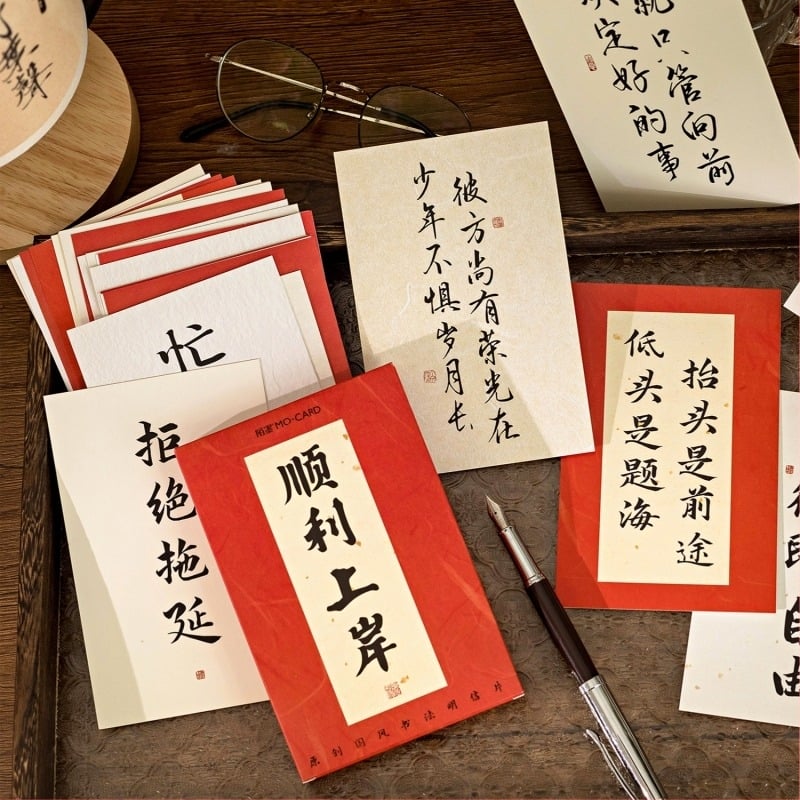 定好的事
就只管向前
彼方尚有荣光在
少年不惧岁月长
抬头是前途
低头是题海
忙
拒绝拖延
MO·CARD
顺利上岸
原创国风书法明信片
自由